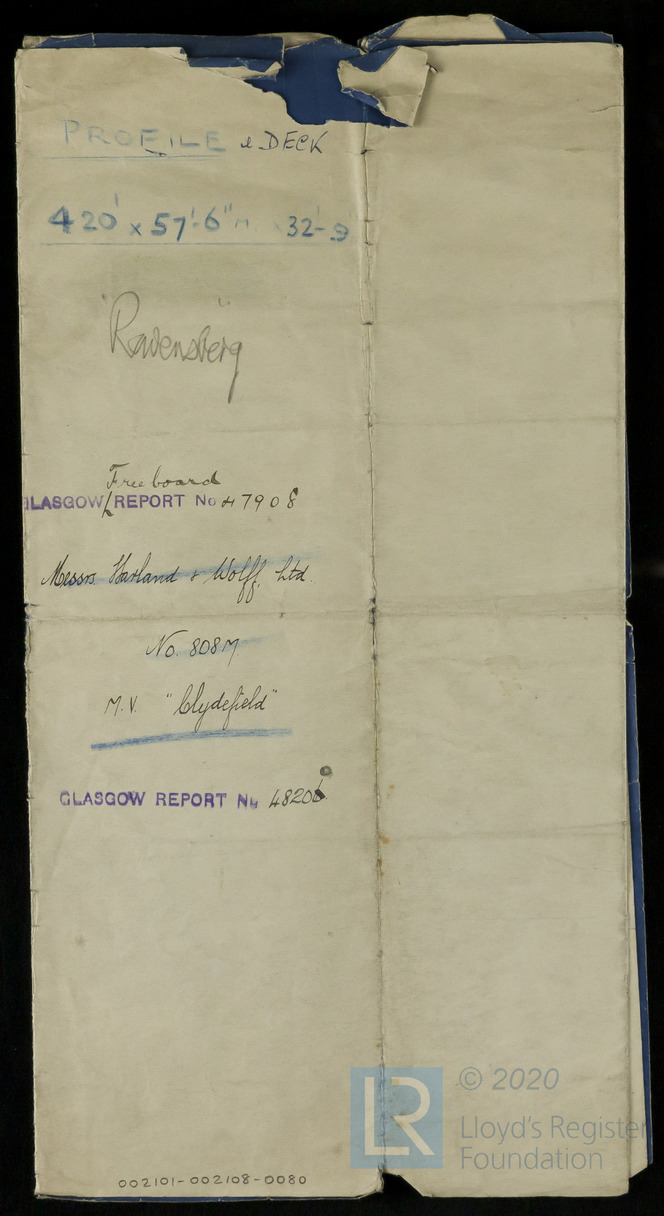 PROFILE & DECK
420' x 57'-6" M x 32'-9
"Ravensberg"
Freeboard
GLASGOW REPORT No 47908
Messrs. Harland & Wolff, Ltd.
No. 808M
M.V. "Clydefield"
GLASGOW REPORT No 48206
002101-002108-0080
LR
© 2020
Lloyd's Register
Foundation